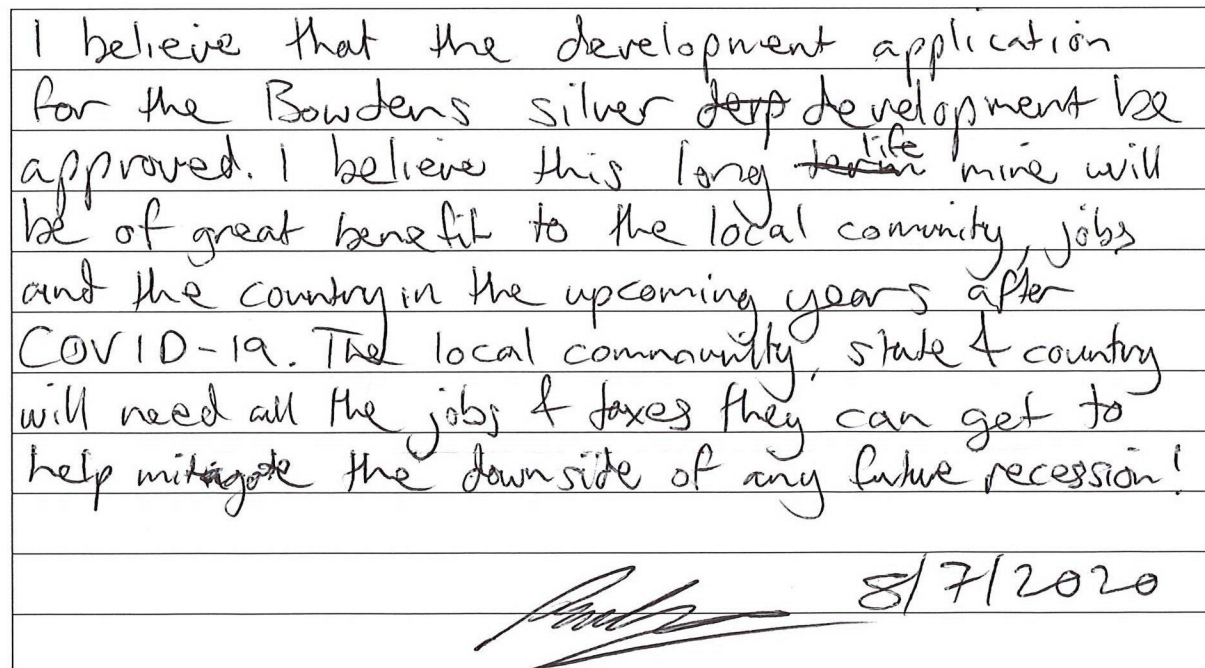 I believe that the development application
for the Bowdens silver development be
approved. I believe this long life mine will
be of great benefit to the local comunity, jobs
and the country in the upcoming years after
COVID-19. The local community, state & country
will need all the jobs & taxes they can get to
help mitigate the downside of any future recession!
8/7/2020